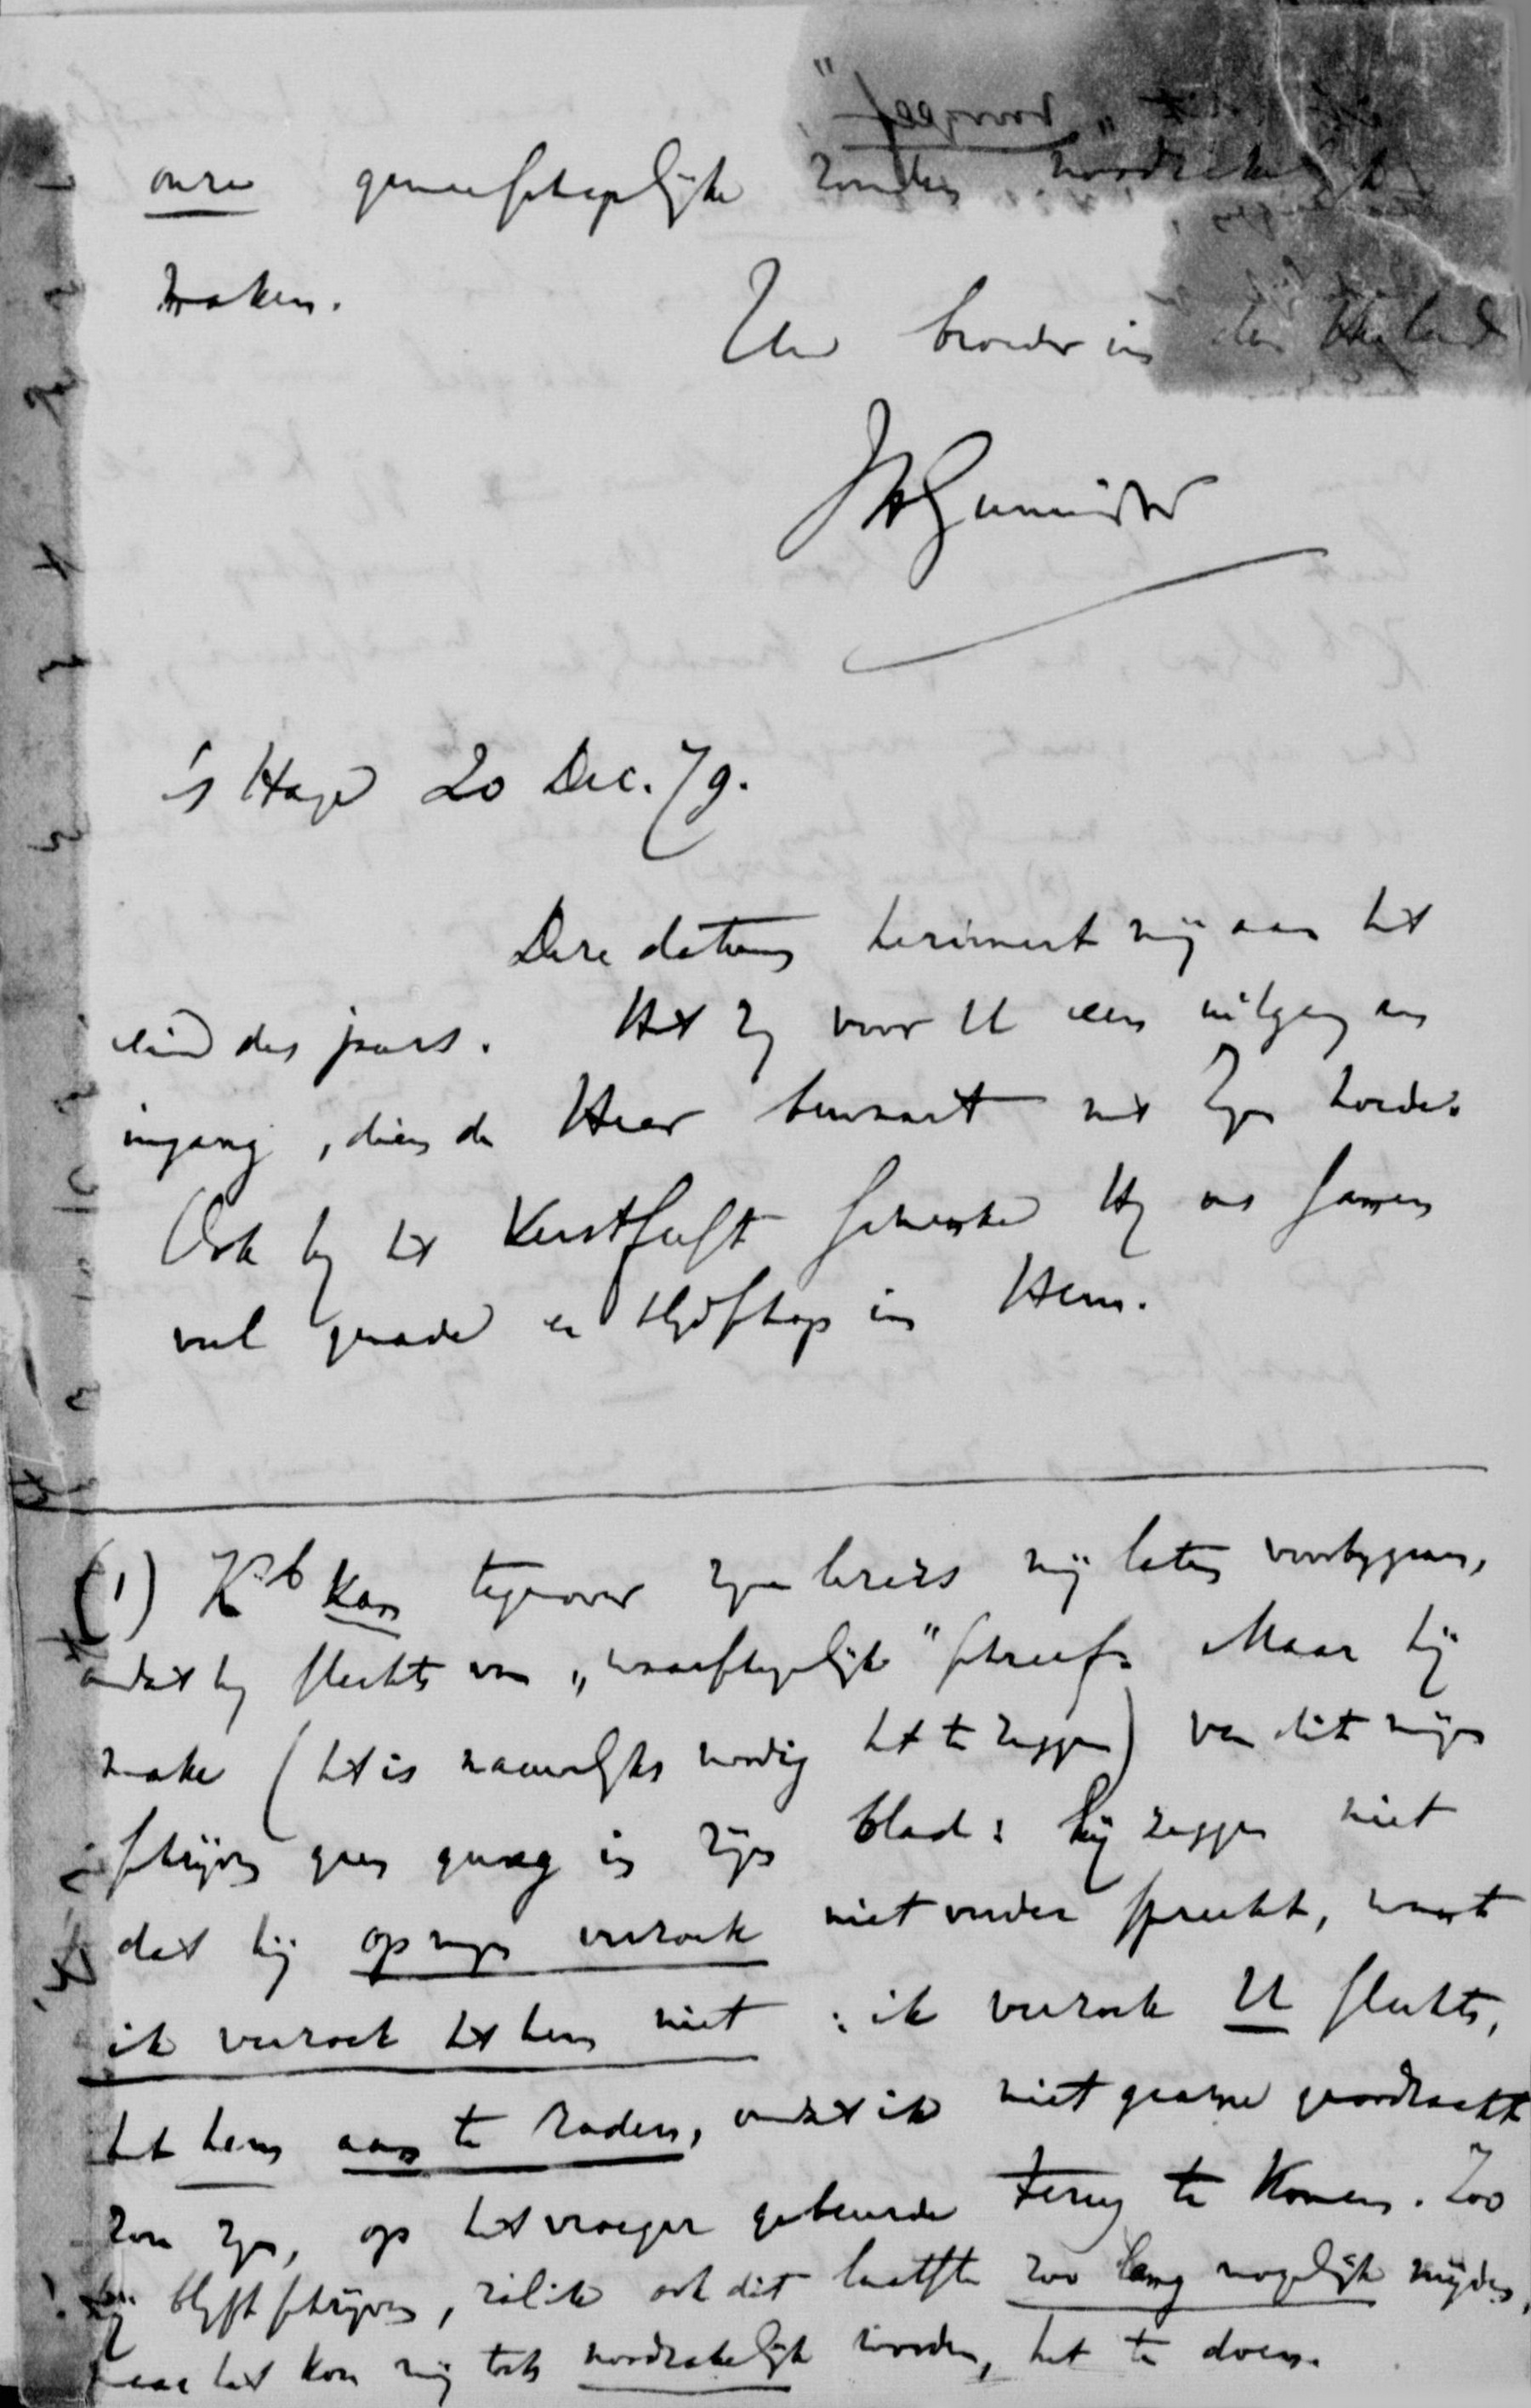 onze gemeenschapelijke zonden noodzakelijk
maken.
Uw broeder in den Heiland
JHGunning
's Hage 20 Dec. 79.
Deze datum herinnert mij aan het
eind des jaars. Het zij voor U een uitgang en
ingang, dien de Heer bewaart met Zijn hoede.
Ook bij het Kerstfeest schenke Hij ons samen
veel genade en blijdschap in Hem.
(1) kan tegenover zijn lezers mij laten voorbijgaan,
omdat hij slechts van „waarschijnlijk" schreef. Maar hij
make (het is nauwelijks noodig het te zeggen) van dit mijn
schrijven geen gewag in zijn blad: hij zegge niet
dat hij op mijn verzoek niet verder spreekt, want
ik verzoek het hem niet: ik verzoek U slechts,
het hem aan te raden, omdat ik niet gaarne genoodzaakt
zou zijn, op het vroeger gebeurde terug te komen. Zoo
hij blijft schrijven, zal ik ook dit laatste zoo lang mogelijk mijden,
maar het kon mij toch noodzakelijk worden, het te doen.